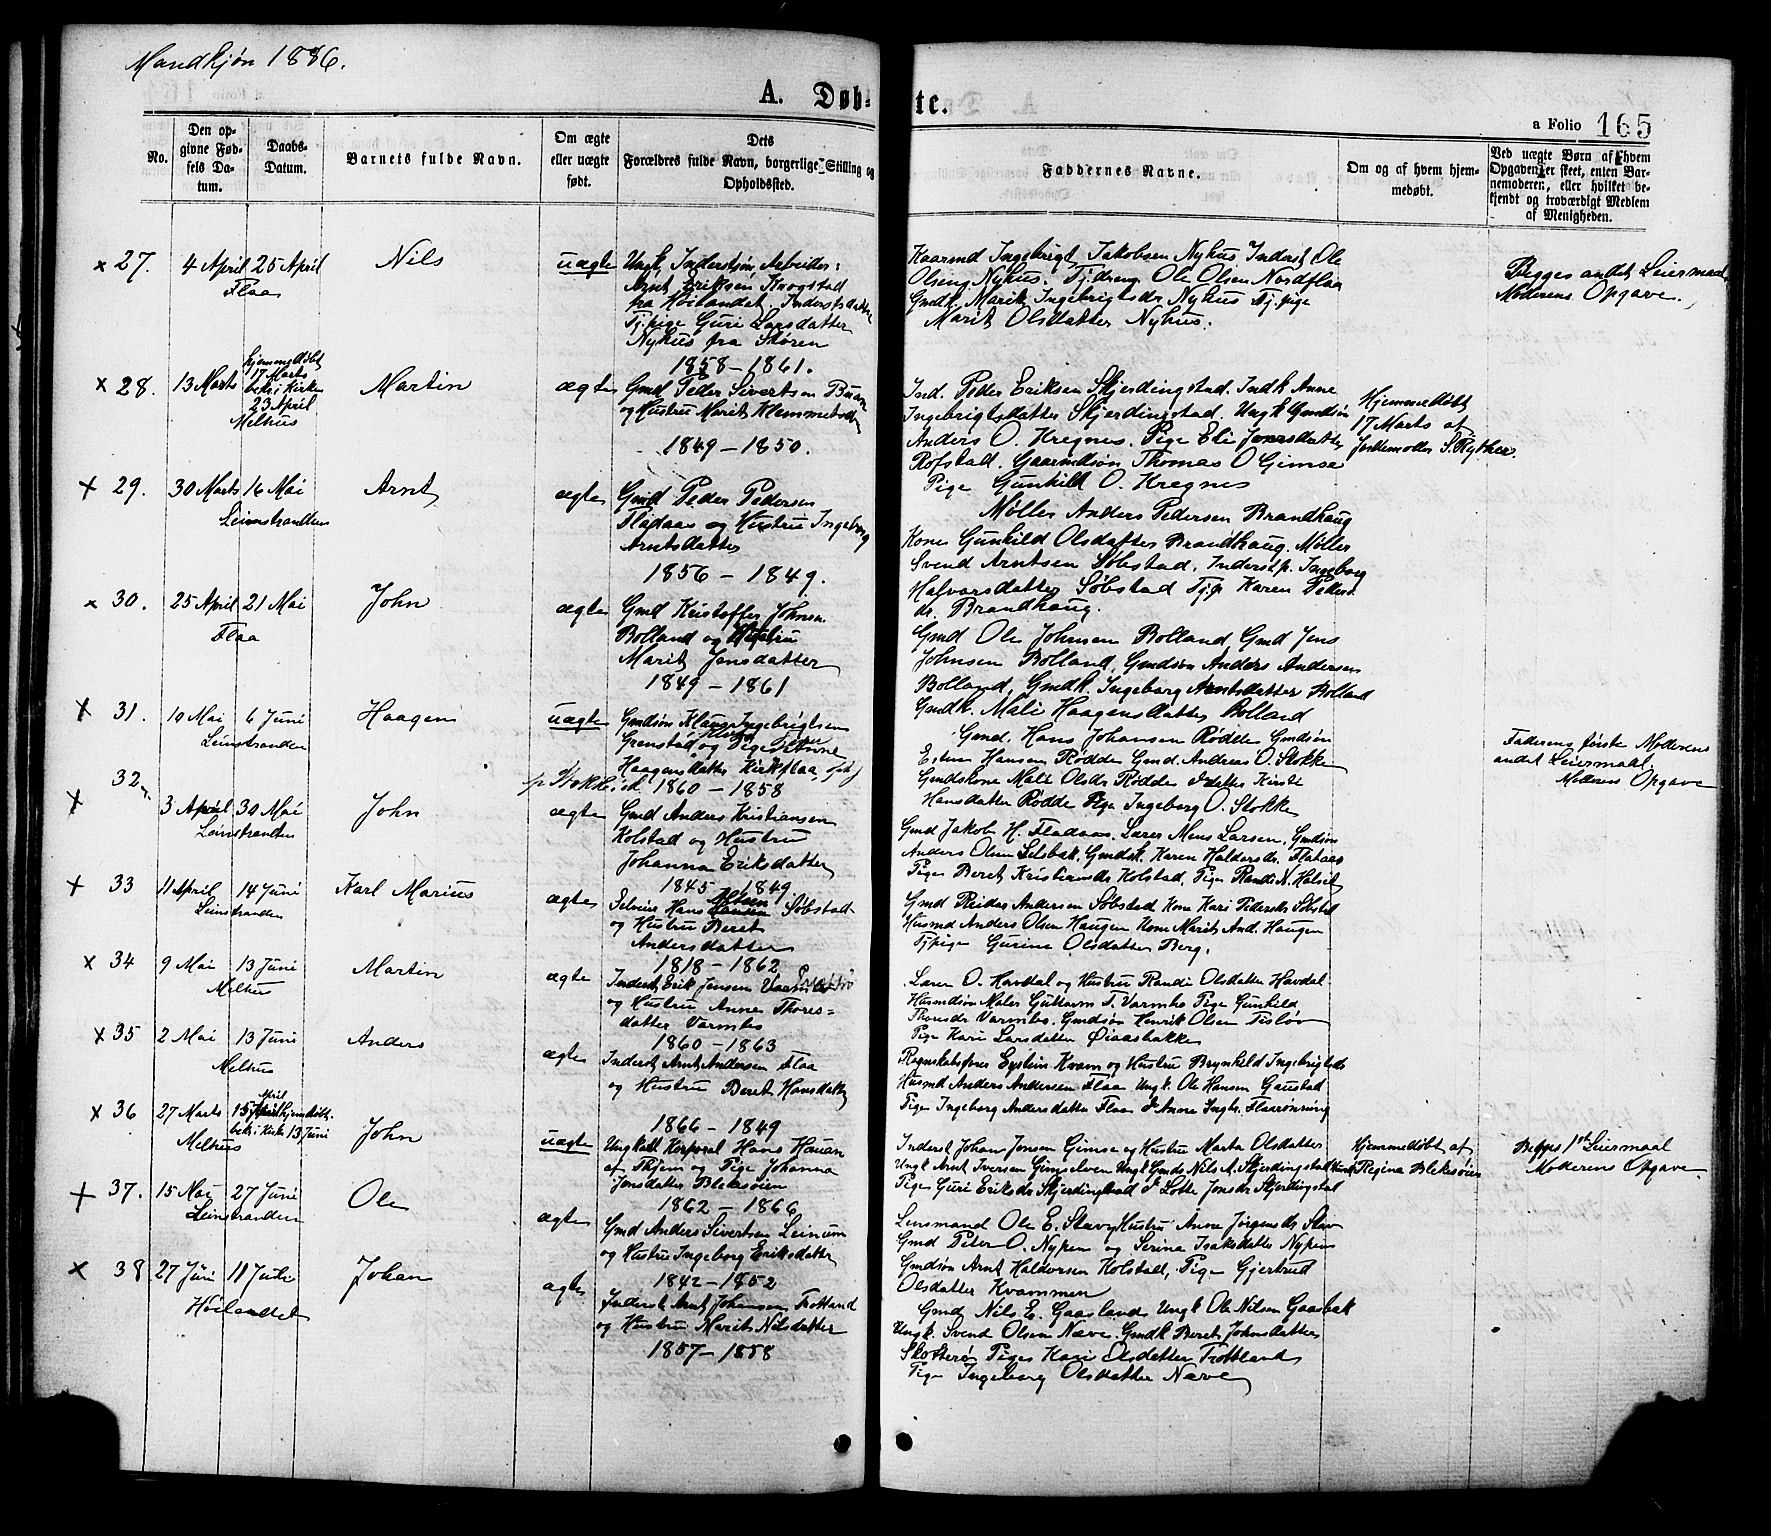 Mandkjøn 1886.
A. Døbte.
a Folio 165
No.
Den opgivne Fødsels Datum.
Daabs-Datum.
Barnets fulde Navn.
Om ægte eller uægte født.
Dets Forældres fulde Navn, borgerlige Stilling og Opholdssted.
Faddernes Navne.
Om og af hvem hjemmedøbt.
Ved uægte Børn af hvem Opgaven er skeet, enten Barnemoderen, eller hvilket bekjendt og troværdigt Medlem af Menigheden.
x 27. 4 April 25 April Nils uægte
Flaa
Ungk. Inderstsøn, Arbeider:
Arnt Eriksen Krogstad
fra Høilandet. Inderstsdatter
Tj.pige Guri Larsdatter
Nyhus fra Støren
1858 – 1861.
Kaarmd Ingebrigt Jakobsen Nyhus, Inderst Ole
Olsen Nyhus. Tjdreng Ole Olsen Nordflaa
Gmdk. Marit Ingebrigtsdr Nyhus Tj.pige
Marit Olsdatter Nyhus.
Begges andet Leiermaal
Moderens Opgave.
x 28. 13 Marts Martin ægte
hjemmedøbt
17 Marts
bekr i Kirke
23 April
Melhus
Gmd Peder Sivertsen Buan
og Hustru Marit Klemmetsdr
1849 – 1850.
Ind. Peder Eriksen Skjerdingstad. Indk Anne
Ingebrigtsdatter Skjerdingstad. Ungk Gmdsøn
Anders O. Kregnes. Pige Eli Jonsdatter
Rofstad. Gaarmdsøn Thomas O Gimse
Pige Gunhild O. Kregnes
Hjemmedøbt
17 Marts af
Jordemoder S. Rytter.
x 29. 30 Marts 16 Mai Arnt ægte
Leinstranden
Gmd Peder Pedersen
Flaaaas og Hustru Ingeborg
Arntsdatter
1856 – 1849.
Møller Anders Pedersen Brandhaug
Kone Gunhild Olsdatter Brandhaug. Møller
Svend Arntsen Søbstad. Inderst p. Ingeborg
Halvorsdatter Søbstad Tj.p Karen Peders-
dr. Brandhaug.
x 30. 25 April 21 Mai John ægte
Flaa
Gmd Kristoffer Johnsen
Bolland og Hustru
Marit Jonsdatter
1849 – 1861
Gmd Ole Johnsen Bolland Gmd Jens
Johnsen Bolland, Gmdsøn Anders Andersen
Bolland, Gmdk. Ingeborg Arntsdatter Bolland
Gmdk. Mali Haagensdatter Bolland
x 31. 10 Mai 6 Juni Haagen uægte
Leinstranden
Gmdsøn Klaus Ingebrigtsen
Grenstad og Pige Anne
Haagensdatter Kirkflaa,
1860 – 1858
Gmd. Hans Johansen Rødde Gmdsøn
Esten Hansen Rødde Gmd. Anders O. Stokke
Gmdskone Mali Olsdr Rødde Pige Kirsti
Hansdatter Rødde Pige Ingeborg O. Stokke
Faderens første Moderens
andet Leiermaal.
Moderens Opgave
x 32 3 April 30 Mai John ægte
Leinstranden
Gmd Anders Kristiansen
Kolstad og Hustru
Johanna Eriksdatter
1845 – 1849.
Gmd Jakob H. Fladaas. Lærer Mons Larsen, Gmdsøn
Anders Olsen Selsbak. Gmdsk. Karen Haldorsdr. Flataas
Pige Beret Kristiansdr Kolstad, Pige Randi A. Halset
x 33 11 April 14 Juni Karl Marius ægte
Leinstranden
Selveier Hans Olsen Søbstad
og Hustru Beret
Andersdatter
1818 – 1862
Gmd Peider Andersen Søbstad Kone Kari Pedersdr Søbstad
Husmd Anders Olsen Haugen Kone Marit And. Haugen
Tjpige Gurine Olsdatter Berg.
x 34 9 Mai 13 Juni Martin ægte
Melhus
Inderst Erik Jensen
og Hustru Anne Thores-
datter Varmbo
1860 – 1863
Lærer O. Havdal og Hustru Randi Olsdatter Havdal
Husmdsøn Maler Guttorm T. Varmbo Pige Gunhild
Thoresdr Varmbo. Gmdsøn Henrik Olsen Fisløv
Pige Kari Larsdatter Øiaasbakke
x 35 2 Mai 13 Juni Anders ægte
Melhus
Inderst Arnt Andersen Flaa
og Hustru Beret Hansdatter
1866 – 1849
Regnskabsfører Eystein Kvam og Hustru Brynhild Ingebrigtsdr
Husmd Anders Andersen Flaa Ungk. Ole Hansen Gaustad
Pige Ingeborg Andersdatter Flaa P Anne Ingbr. Flaarønning
x 36 27 Marts 15 April hjemdøbt. John uægte
bekr i Kirke 13 Juni
Melhus
Ungkall Korporal Hans Hauan
af Thjem og Pige Johanna
Jonsdatter Bleksøien
1862 – 1866
Inderst Johan Jonsen Gimse og Hustru Marta Olsdatter
Ungk Arnt Iversen Gimseløen Ungk Gmds Nils A. Skjerdingstad
Pige Guri Eriksdr Skjerdingstad P Lotte Jonsdr Skjerdingstad
Hjemmedøbt af
Regina Bleksøien
Begges 1ste Leiermaal
Moderens Opgave
+ 37. 15 Mai 27 Juni Ole ægte
Leinstranden
Gmd Anders Sivertsen Leinum
og Hustru Ingeborg Eriksdatter
1842 – 1852
Lensmand Ole E. Stav Hustru Anne Jørgensdr Stav
Gmd Peter O. Nypen og Serina Isaksdatter Nypen
Gmdsøn Arnt Haldorsen Kolstad, Pige Gjertrud
Olsdatter Kvammen
x 38 27 Juni 11 Juli Johan ægte
Høilandet
Inderst Arnt Johansen Trotland
og Hustru Marit Nilsdatter
1857 – 1858
Gmd Nils E. Gaasland Ungk Ole Nilsen Gaasbak
Ungk. Svend Olsen Næve. Gmdk Beret Johnsdatter
Skotterø Pige Kari Olsdatter Trotland
Pige Ingeborg Olsdatter Næve